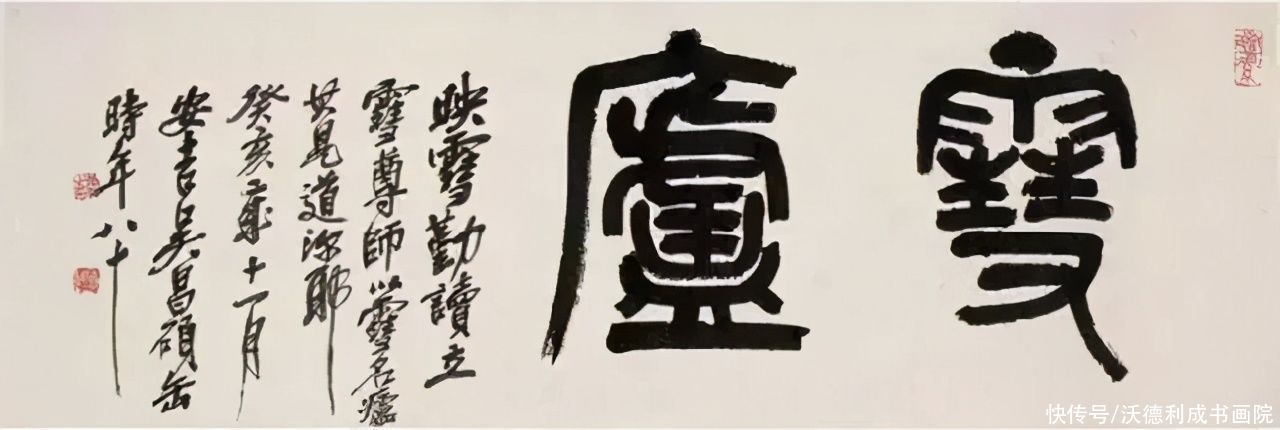 雪廬
映雪勤讀立
雪尊師以雪名廬
其見道深耶
癸亥歲十一月
安吉吳昌碩缶
時年八十
快传号/沃德利成书画院